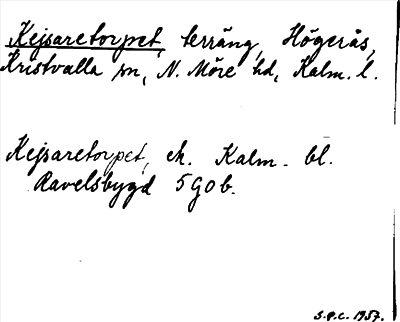 Kejsaretorpet, terräng, Högerås,
Kristvalla sn, N. Möre hd, Kalm. l.
Kejsaretorpet, ek. Kalm. bl.
Ravelsbygd 5G0b.
S.P.C. 1957.